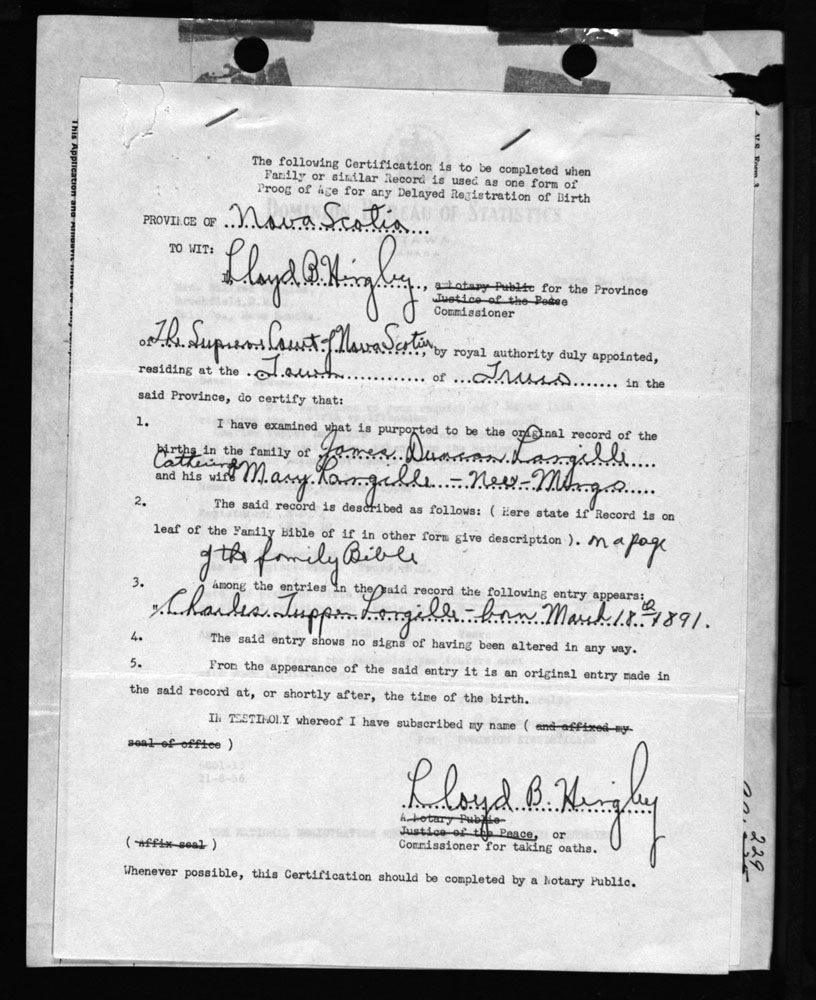 The following Certification is to be completed when
Family or similar Record is used as one form of
Proog of Age for any Delayed Registration of Birth
DOMINION BUREAU OF STATISTICS
PROVINCE OF Nova Scotia
TO WIT:
I, Lloyd B. Hingley, a Notary Public for the Province
Justice of the Peace
Commissioner
of The Supreme Court of Nova Scotia, by royal authority duly appointed,
residing at the Town of Truro in the
said Province, do certify that:
1. I have examined what is purported to be the original record of the
births in the family of James Duncan Langille
Catherine
and his wife Mary Langille - Nee -
2. The said record is described as follows: ( Here state if Record is on
leaf of the Family Bible of if in other form give description ). On a page
of the family Bible
3. Among the entries in the said record the following entry appears:
"Charles Tupper Langille - born March 18th 1891.
4. The said entry shows no signs of having been altered in any way.
5. From the appearance of the said entry it is an original entry made in
the said record at, or shortly after, the time of the birth.
IN TESTIMONY whereof I have subscribed my name ( and affixed my
seal of office )
Lloyd B. Hingley
A Notary Public
Justice of the Peace, or
( Affix seal ) Commissioner for taking oaths.
Whenever possible, this Certification should be completed by a Notary Public.
This Application and
229